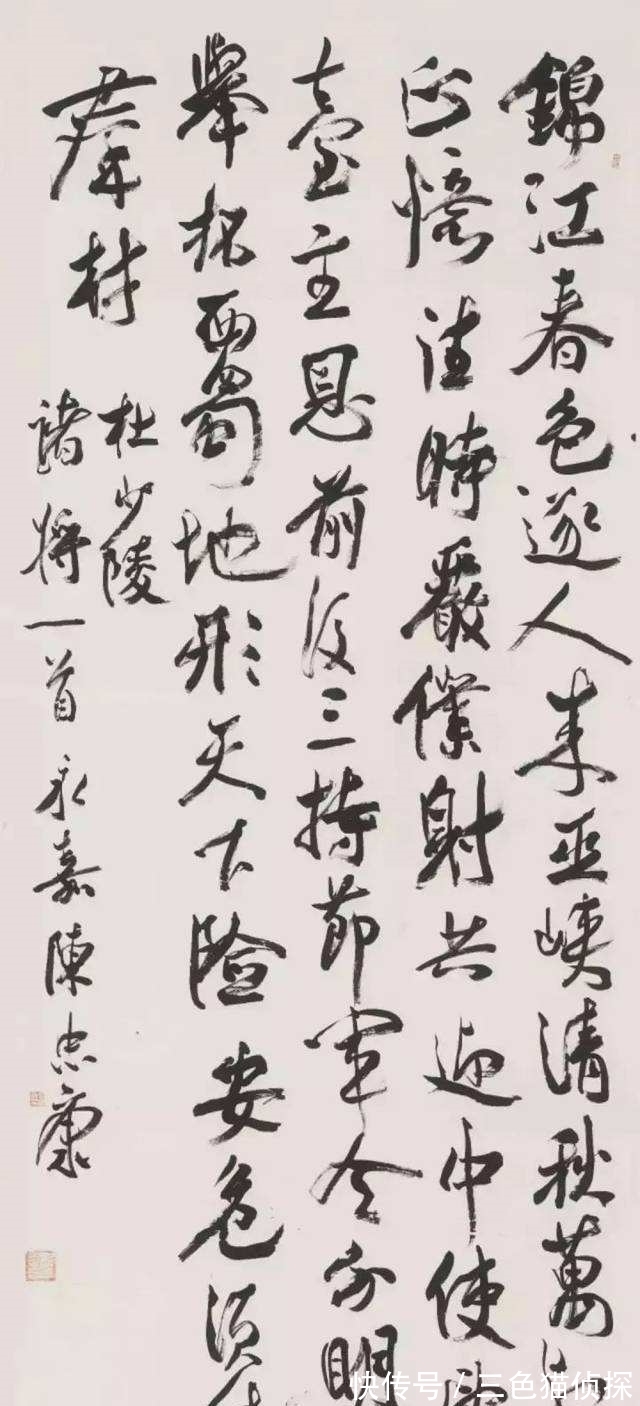 錦江春色逐人来巫峽清秋萬
正憶往時嚴僕射共迎中使
臺主恩前後三持節軍令分明
舉杯西蜀地形天下險安危須
羣材
杜少陵
諸將一首永嘉陳忠康
快传号 / 三色猫侦探